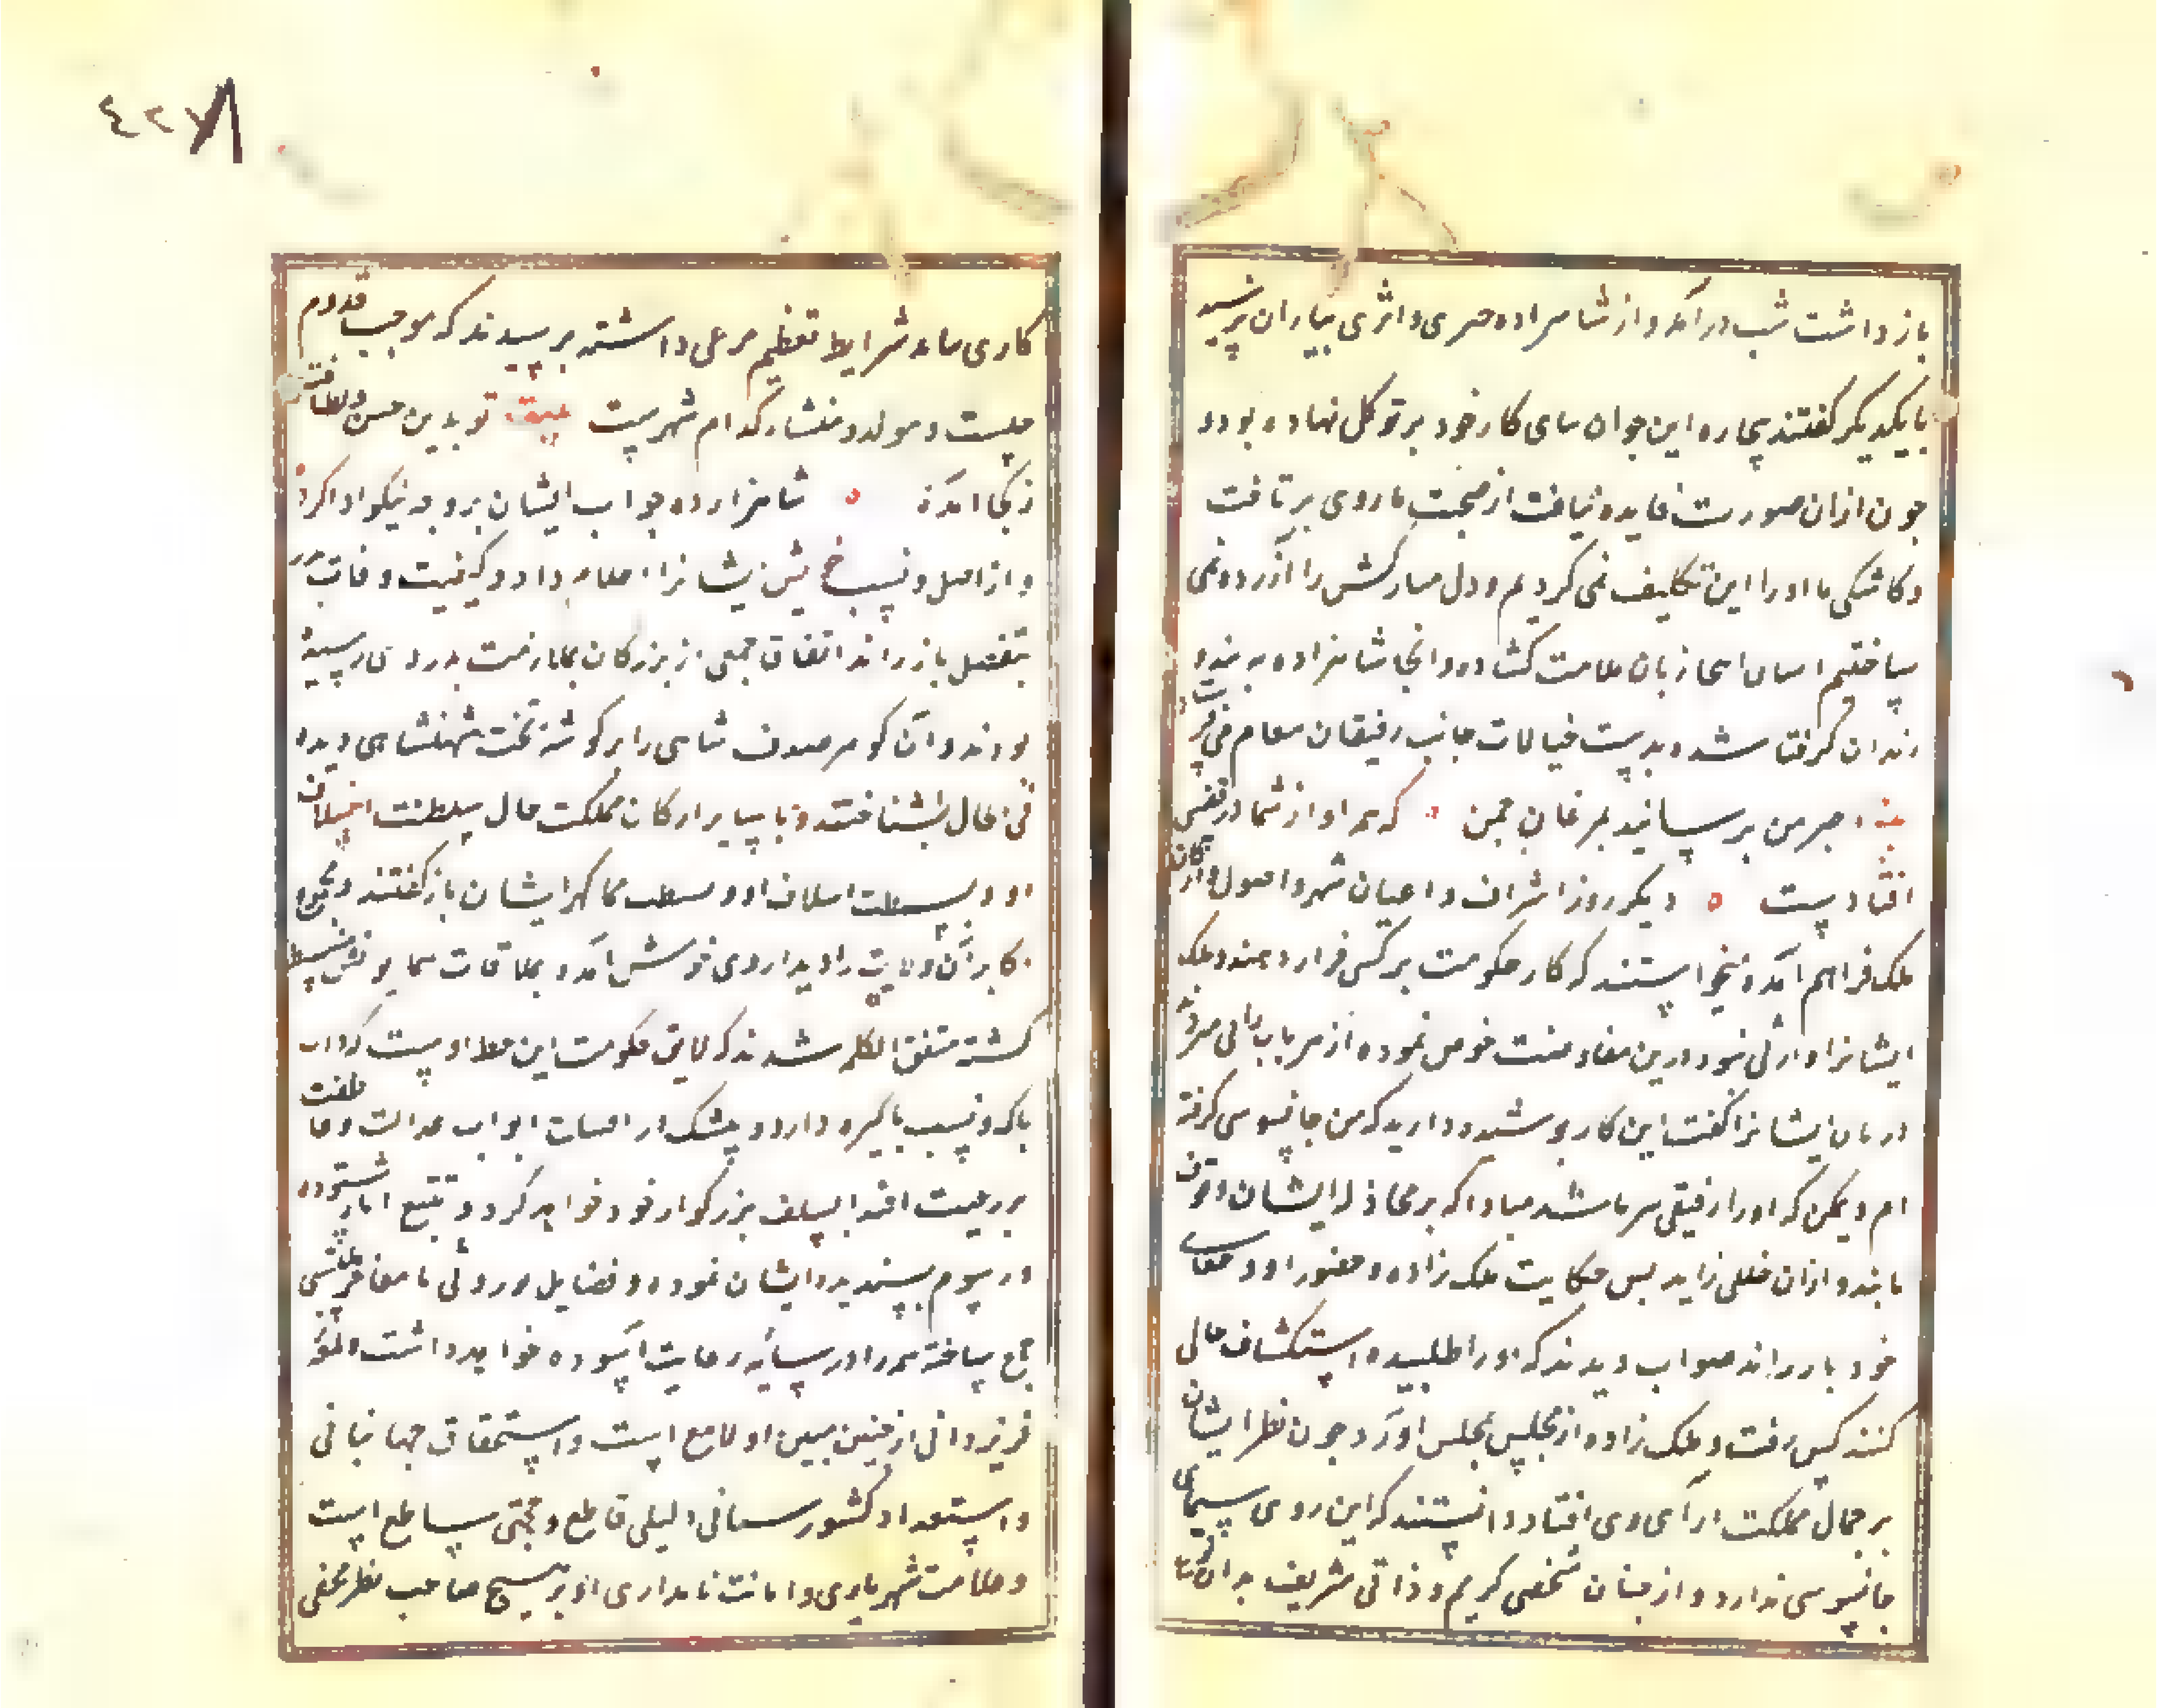 باز داشت شب درآمد و از شاهزاده خبری و اثری بیاران نرسید
با یکدیگر گفتند بیچاره این جوان بنای کار خود بر توکل نهاده بود و
چون ازان صورت فایده نیافت از صحبت ما روی برتافت
و کاشکی ما او را این تکلیف نمی کردیم و دل مبارکش را آزرده نمی
ساختیم ایشان اینجا زبان ملامت گشاده و آنجا شاهزاده به بند و
زندان گرفتار شده بدست خیالات جانب رفیقان پیغام می فرستاد
بیت خبر من برسانید بمرغان چمن که هم آواز شما در قفسی
افتادست دیگر روز اشراف و اعیان شهر و اصول و ارکان
ملک فراهم آمده میخواستند که کار حکومت بر کسی قرار دهند و ملک
ایشانرا وارثی نبود درین مفاوضت خوض نموده از هر باب رائی میزدند
دربان ایشانرا گفت این کار پوشیده دارید که من جاسوسی گرفته
ام و ممکن که او را رفیقی نیز باشد مبادا که بر مجادله ایشان وقوف
یابند و ازان خللی زاید پس حکایت ملک زاده و حضور او و جفای
خود باز راند صواب دیدند که او را طلبیده استکشاف حالی
کنند کس رفت و ملک زاده از محبس بمجلس آورد چون نظر ایشان
بر جمال مملکت آرای وی افتاد دانستند که این روی سیمای
جاسوسی ندارد و از چنان شخصی کریم و ذاتی شریف بدان
کاری نیاید شرایط تعظیم مرعی داشته پرسیدند که موجب قدوم
چیست و مولد و منشاء کدام شهرست بیت تو بدین حسن و لطافت
ز کجا آمده شاهزاده جواب ایشان بر وجه نیکو ادا کرد
و از اصل و نسب خویش ایشانرا اعلام داد و کیفیت وفات پدر
بتفصیل باز راند اتفاق جمعی از بزرگان بملازمت پدر وی رسیده
بودند و آن گوهر صدف شاهی را بر گوشه تخت شهنشاهی دیده
فی الحال بشناختند و با سایر ارکان مملکت حال سلطنت اسلاف
او و بسطت اسلاف او و بسطت ممالک ایشان باز گفتند و مجموع
اکابر آن ولایت را دیدار وی خوش آمد و بملاقات همایونش منبسط
گشته متفق الکلمه شدند که لایق حکومت این خطه اوست که ذات
پاک و نسب پاکیزه دارد و بیشک در افشاندن ابواب عدالت و عاطفت
بر رعیت اقتدا بسلف بزرگوار خود خواهد کرد و تتبع آثار ستوده
و رسوم پسندیده ایشان نموده و فضایل موروثی با مفاخر مکتسبی
جمع ساخته همه را در سایه رعایت آسوده خواهد داشت و لمعه
فر یزدانی از جبین مبین او لامع است و استحقاق جهانبانی
و استعداد کشورستانی دلیلی قاطع و حجتی ساطع است
و علامت شهریاری و امانت نامداری او بر هیچ صاحب نظر مخفی
٤٢٧